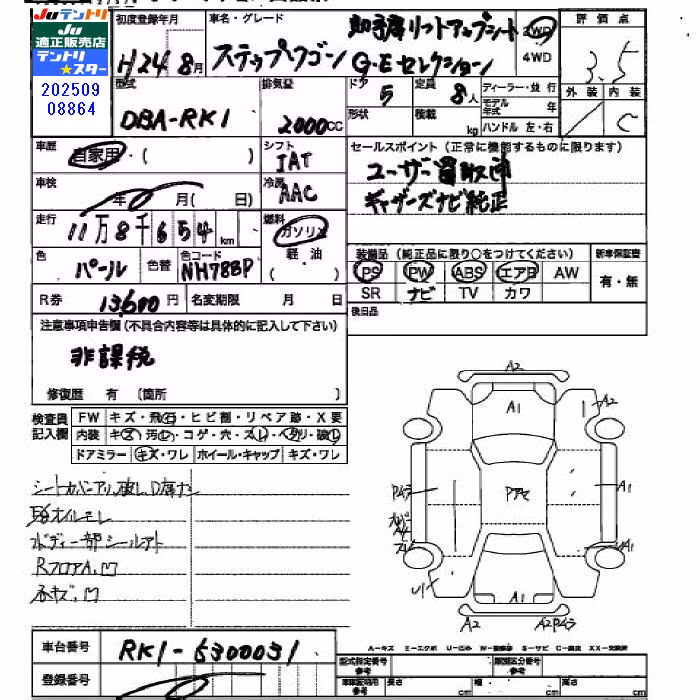 Juテントリ
Ju
適正販売店
テントリ
★スター
202509
08864
初度登録年月
H24年8月
車名・グレード
助手席リフトアップシート
ステップワゴン G・Eセレクション
2WD
4WD
評価点
3.5
外装 内装
/ C
型式
DBA-RK1
排気量
2000cc
ドア
5
定員
8人
形状
積載
kg
ディーラー・並行
モデル年式 年
ハンドル 左・右
車歴
自家用・( )
シフト
IAT
セールスポイント(正常に機能するものに限ります)
ユーザー買取車
ギャザーズナビ純正
車検
年 月( 日)
冷房
AAC
走行
11万8千654km
燃料
ガソリン
軽油
色
パール
色替
色コード
NH788P
装備品(純正品に限り○をつけてください)
新車保証書
PS PW ABS エアB AW
SR ナビ TV カワ
有・無
R券 13,600円
名変期限 月 日
後日品
注意事項申告欄(不具合内容等は具体的に記入して下さい)
非課税
修復歴 有 〔箇所 〕
検査員記入欄
FW キズ・飛石・ヒビ割・リペア跡・X要
内装 キズ・汚れ・コゲ・穴・スレ・ヘタリ・破れ
ドアミラー キズ・ワレ ホイール・キャップ キズ・ワレ
シートカバーアリ、破レ、D席ナシ
オイルモレ
ボディ一部シールアト
RフロアA、凹
小キズ、凹
A2
A1
A2
Pムラ
Pアセ
A1
A1
A1
A2
A2Pムラ
車台番号
RK1-5300031
登録番号
A-キズ E-エクボ U-凹み W-補修跡 S-サビ C-腐食 XX-交換済
型式指定番号 参考
類別区分番号 参考
車輌証明用 参考
長さ cm
幅 cm
高さ cm